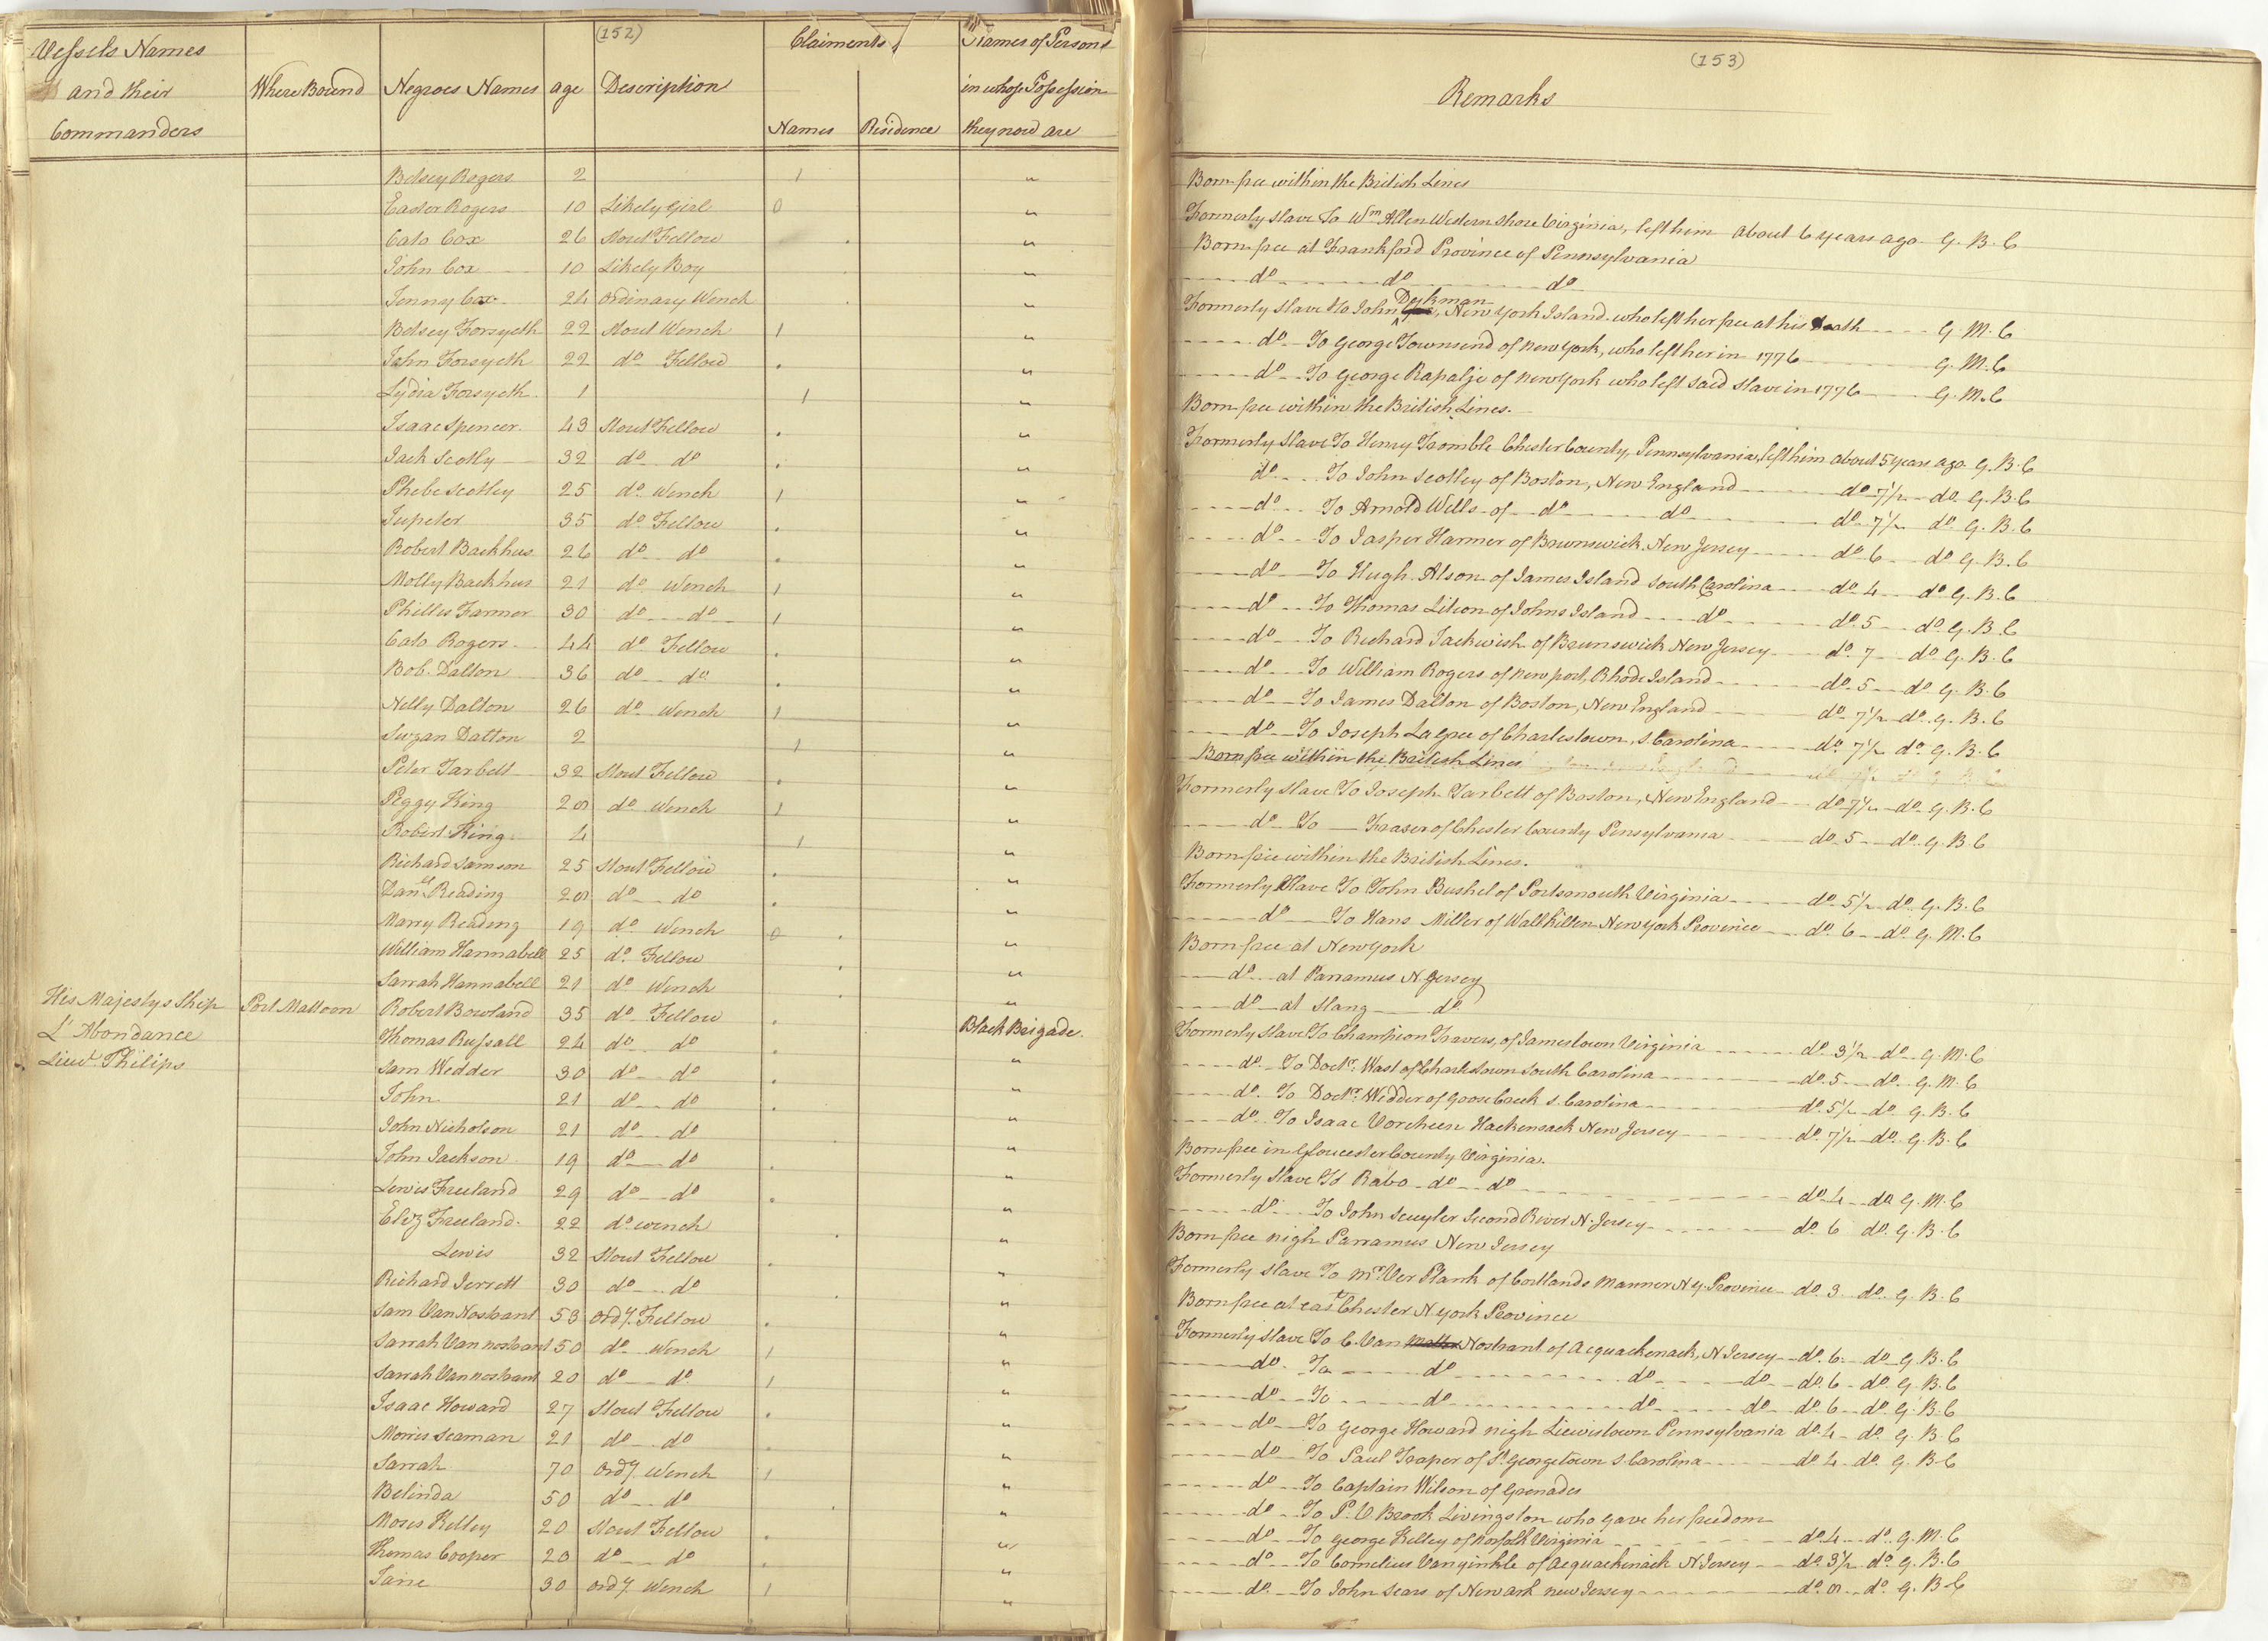 (152)
Vessels Names and their Commanders
Where Bound
Negroes Names
age
Description
Claiments
Names
Residence
Names of Persons in whose Possession they now are
Betsey Rogers 2 1 "
Easter Rogers 10 Likely Girl 0 "
Cato Cox 26 Stout Fellow "
John Cox 10 Likely Boy "
Jenny Cox 24 Ordinary Wench "
Betsey Forsyeth 22 Stout Wench 1 "
John Forsyeth 22 do Fellow "
Lydia Forsyeth 1 1 "
Isaac Spencer 43 Stout Fellow "
Jack Scotly 32 do do "
Phebe Scotley 25 do Wench 1 "
Jupeter 35 do Fellow "
Robert Backhus 26 do do "
Molly Backhus 21 do Wench 1 "
Phillis Farmer 30 do do 1 "
Cato Rogers 44 do Fellow "
Bob Dalton 36 do do "
Nelly Dalton 26 do Wench 1 "
Suzan Datton 2 1 "
Peter Tarbett 32 Stout Fellow "
Peggy King 28 do Wench 1 "
Robert King 4 1 "
Richard Samson 25 Stout Fellow "
Danel Reading 28 do do "
Marry Reading 19 do Wench 0 "
William Hannabell 25 do Fellow "
Sarrah Hannabell 21 do Wench "
His Majestys Ship L'Abondance Lieut Philips
Port Mattoon
Robert Bowland 35 do Fellow Black Brigade
Thomas Russall 24 do do "
Sam Wedder 30 do do "
John 21 do do "
John Nicholson 21 do do "
John Jackson 19 do do "
Lewis Freeland 29 do do "
Eliz Freeland 22 do wench "
Lewis 32 Stout Fellow "
Richard Jerrett 30 do do "
Sam Van Nostrant 53 Ordy Fellow "
Sarrah Van nostrant 50 do Wench 1 "
Sarrah Van nostrant 20 do do 1 "
Isaac Howard 27 Stout Fellow "
Morris Seaman 21 do do "
Sarrah 70 Ordy Wench 1 "
Belinda 50 do do "
Moses Kelley 20 Stout Fellow "
Thomas Cooper 20 do do "
Jane 30 Ordy Wench 1 "
(153)
Remarks
Born free within the British Lines
Formerly slave To Wm Allen Western Shore Virginia, left him about 6 years ago G. B. C
Born free at Frankford Province of Pennsylvania
do do do
Formerly slave to John Dyckman, New York Island who left her free at his death G. M. C
do To George Townsend of New York, who left her in 1776 G. M. C
do To George Rapalje of New York who left said slave in 1776 G. M. C
Born free within the British Lines.
Formerly Slave To Henry Tromble Chester County, Pennsylvania, left him about 5 years ago G. B. C
do To John Scotley of Boston, New England do 7½ do G. B. C
do To Arnold Wells of do do do 7½ do G. B. C
do To Jasper Harmer of Brunswick New Jersey do 6 do G. B. C
do To Hugh Alson of James Island South Carolina do 4 do G. B. C
do To Thomas Litson of Johns Island do do 5 do G. B. C
do To Richard Jackwish of Brunswick New Jersey do 7 do G. B. C
do To William Rogers of newport, Rhode Island do 5 do G. B. C
do To James Dalton of Boston, New England do 7½ do G. B. C
do To Joseph La gree of Charlestown, S. Carolina do 7½ do G. B. C
Born free within the British Lines
Formerly Slave To Joseph Tarbett of Boston, New England do 7½ do G. B. C
do To Fraser of Chester County Pensylvania do 5 do G. B. C
Born free within the British Lines.
Formerly Slave To John Bushel of Portsmouth Virginia do 5½ do G. B. C
do To Hans Miller of Wallkillen New York Province do 6 do G. M. C
Born free at New York
do at Parramus N. Jersey
do at Slang do
Formerly slave To Champion Travers, of Jamestown Virginia do 3½ do G. M. C
do To Doctr. Wast of Charlestown South Carolina do 5 do G. M. C
do To Doctr. Wedder of Goose Creek S. Carolina do 5½ do G. B. C
do To Isaac Vorcheen Hackensack New Jersey do 7½ do G. B. C
Born free in Gloucester County Virginia.
Formerly Slave To Rabo do do do 4 do G. M. C
do To John Scuyler Second River N. Jersey do 6 do G. B. C
Born free nigh Parramus New Jersey
Formerly slave To Mr Ver Plank of Cortlands Manner N Y. Province do 3 do G. B. C
Born free at east Chester N York Province
Formerly slave To C. Van Nostrant of Acquackenack, N Jersey do 6 do G. B. C
do To do do do do 6 do G. B. C
do To do do do do 6 do G. B. C
do To George Howard nigh Liewistown Pennsylvania do 4 do G. B. C
do To Paul Traper of St Georgetown S. Carolina do 4 do G. B. C
do To Captain Wilson of Grenades
do To P. V. Brook Livingston who gave her freedom
do To George Kelley of Norfolk Virginia do 4 do G. M. C
do To Cornelius Vanginkle of Acquackenack N Jersey do 3½ do G. B. C
do To John Sears of Newark new Jersey do 8 do G. B. C